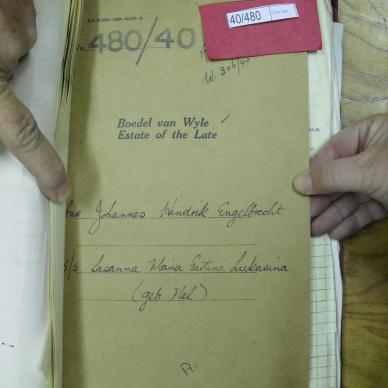 40/480
480/40
W. 306/40
Boedel van Wyle
Estate of the Late
Johannes Hendrik Engelbrecht
s/s Susanna Maria Gertina Lukasina
(geb Nel)